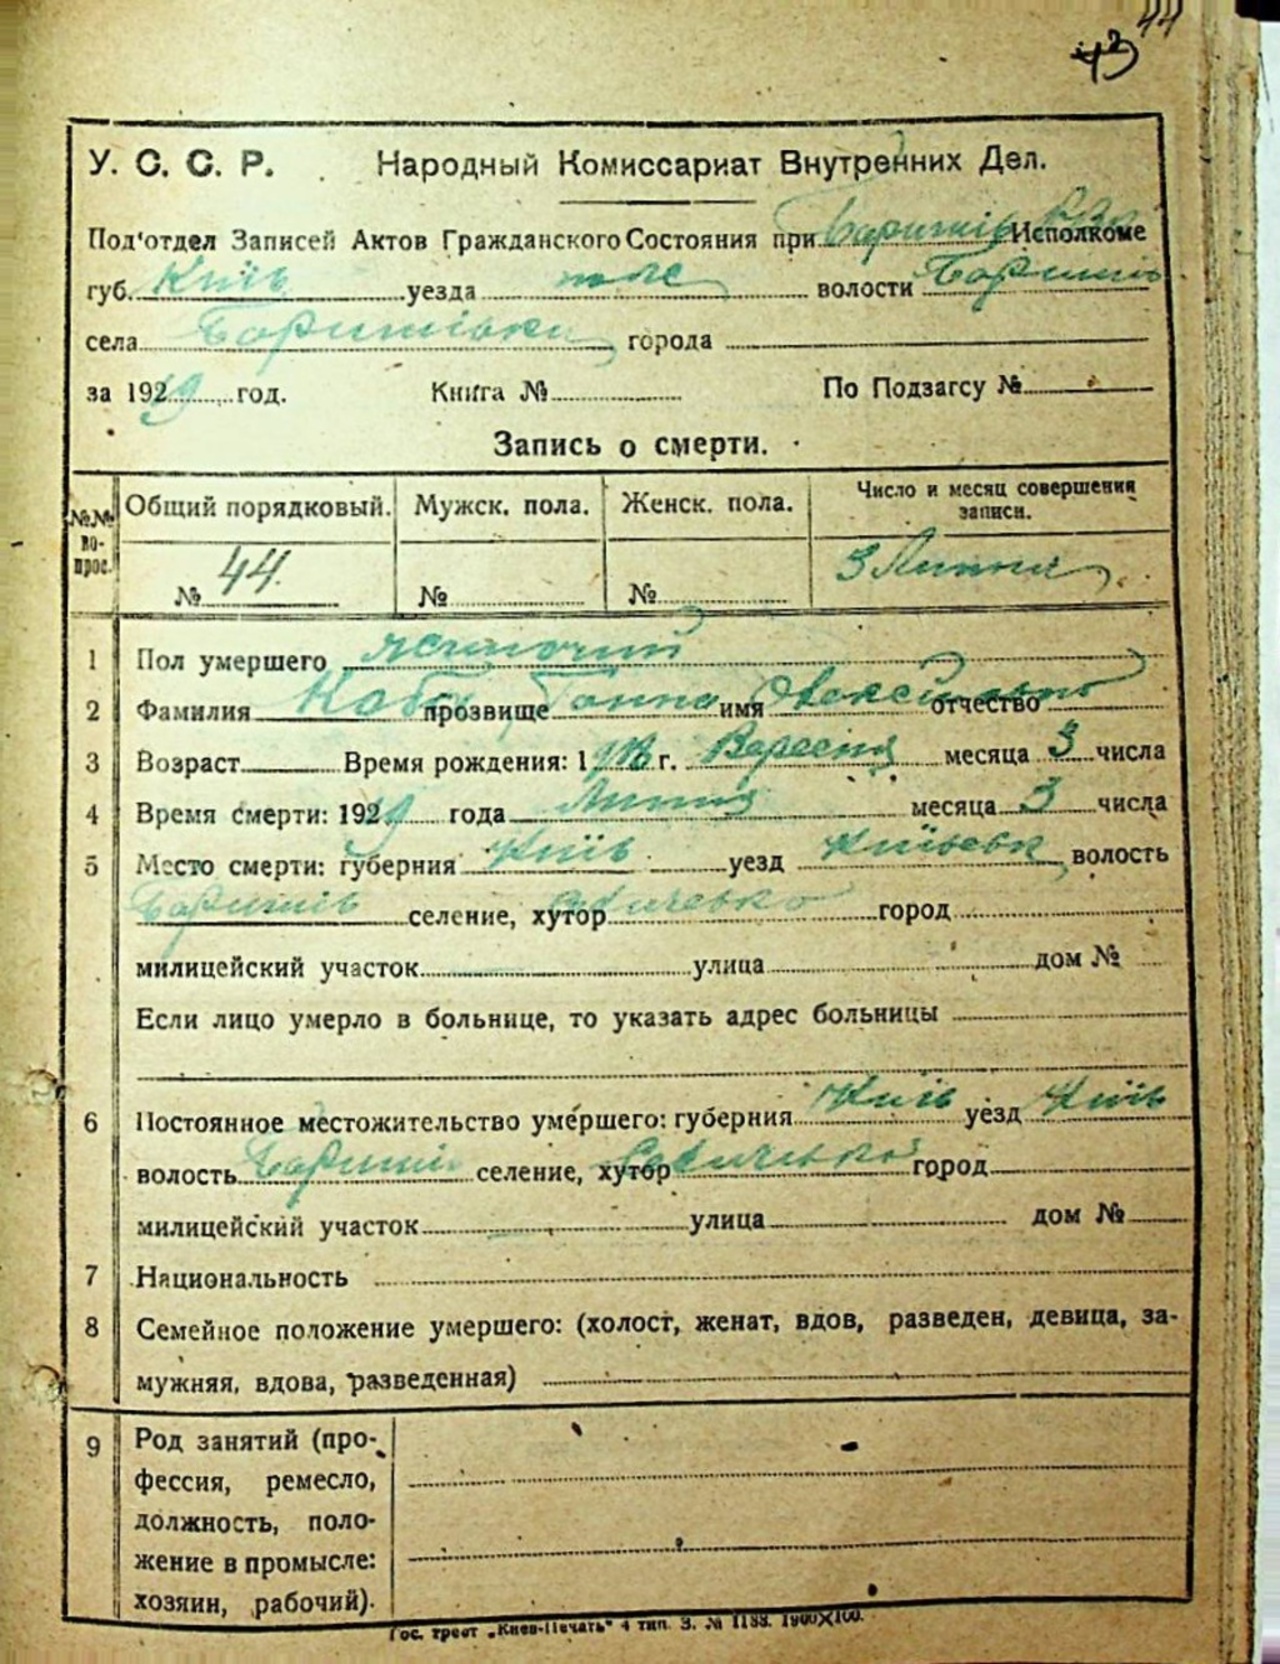 44
43
У. С. С. Р. Народный Комиссариат Внутренних Дел.
Под'отдел Записей Актов Гражданского Состояния при Баришів РВК Исполкоме
губ. Київ уезда теж волости Баришів
села Баришівки города
за 1929 год. Книга № По Подзагсу №
Запись о смерти.
№№ во- прос. Общий порядковый. Мужск. пола. Женск. пола. Число и месяц совершения записи.
№ 44. № № 3 Липня
1 Пол умершего жіночий
2 Фамилия прозвище Ганна имя Олексіївна отчество
3 Возраст Время рождения: 1 г. Вересня месяца 3 числа
4 Время смерти: 1929 года Липня месяца 3 числа
5 Место смерти: губерния Київ уезд Київськ волость
Баришів селение, хутор город
милицейский участок улица дом №
Если лицо умерло в больнице, то указать адрес больницы
6 Постоянное местожительство умершего: губерния Київ уезд Київ
волость Баришів селение, хутор город
милицейский участок улица дом №
7 Национальность
8 Семейное положение умершего: (холост, женат, вдов, разведен, девица, за-
мужняя, вдова, разведенная)
9 Род занятий (про-
фессия, ремесло,
должность, поло-
жение в промысле:
хозяин, рабочий).
Гос. трест „Киев-Печать" 4 тип. З. № 1188. 1900X100.